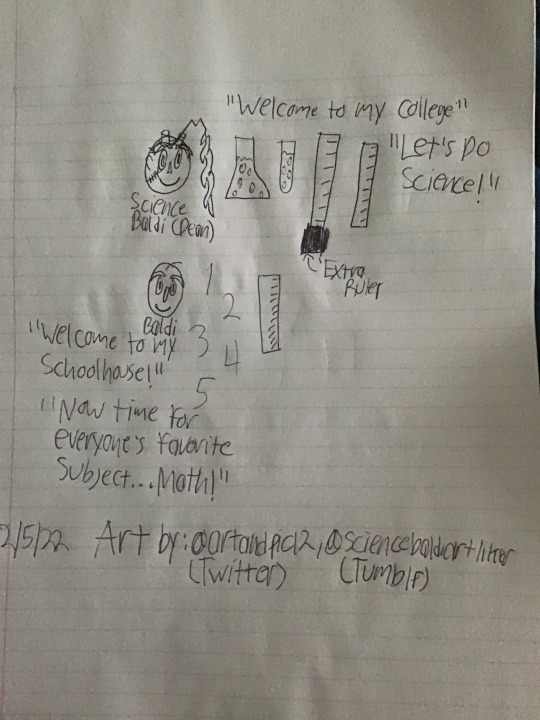 "Welcome to my College"
"Let's Do
Science!"
Science
Baldi (Dean)
Extra
Ruler
Baldi
1
2
3
4
5
"Welcome
to my
Schoolhouse!"
"Now time for
everyone's favorite
Subject...Math!"
2/5/22 Art by: @artandpic12, @sciencebaldiartliker
(Twitter) (Tumblr)